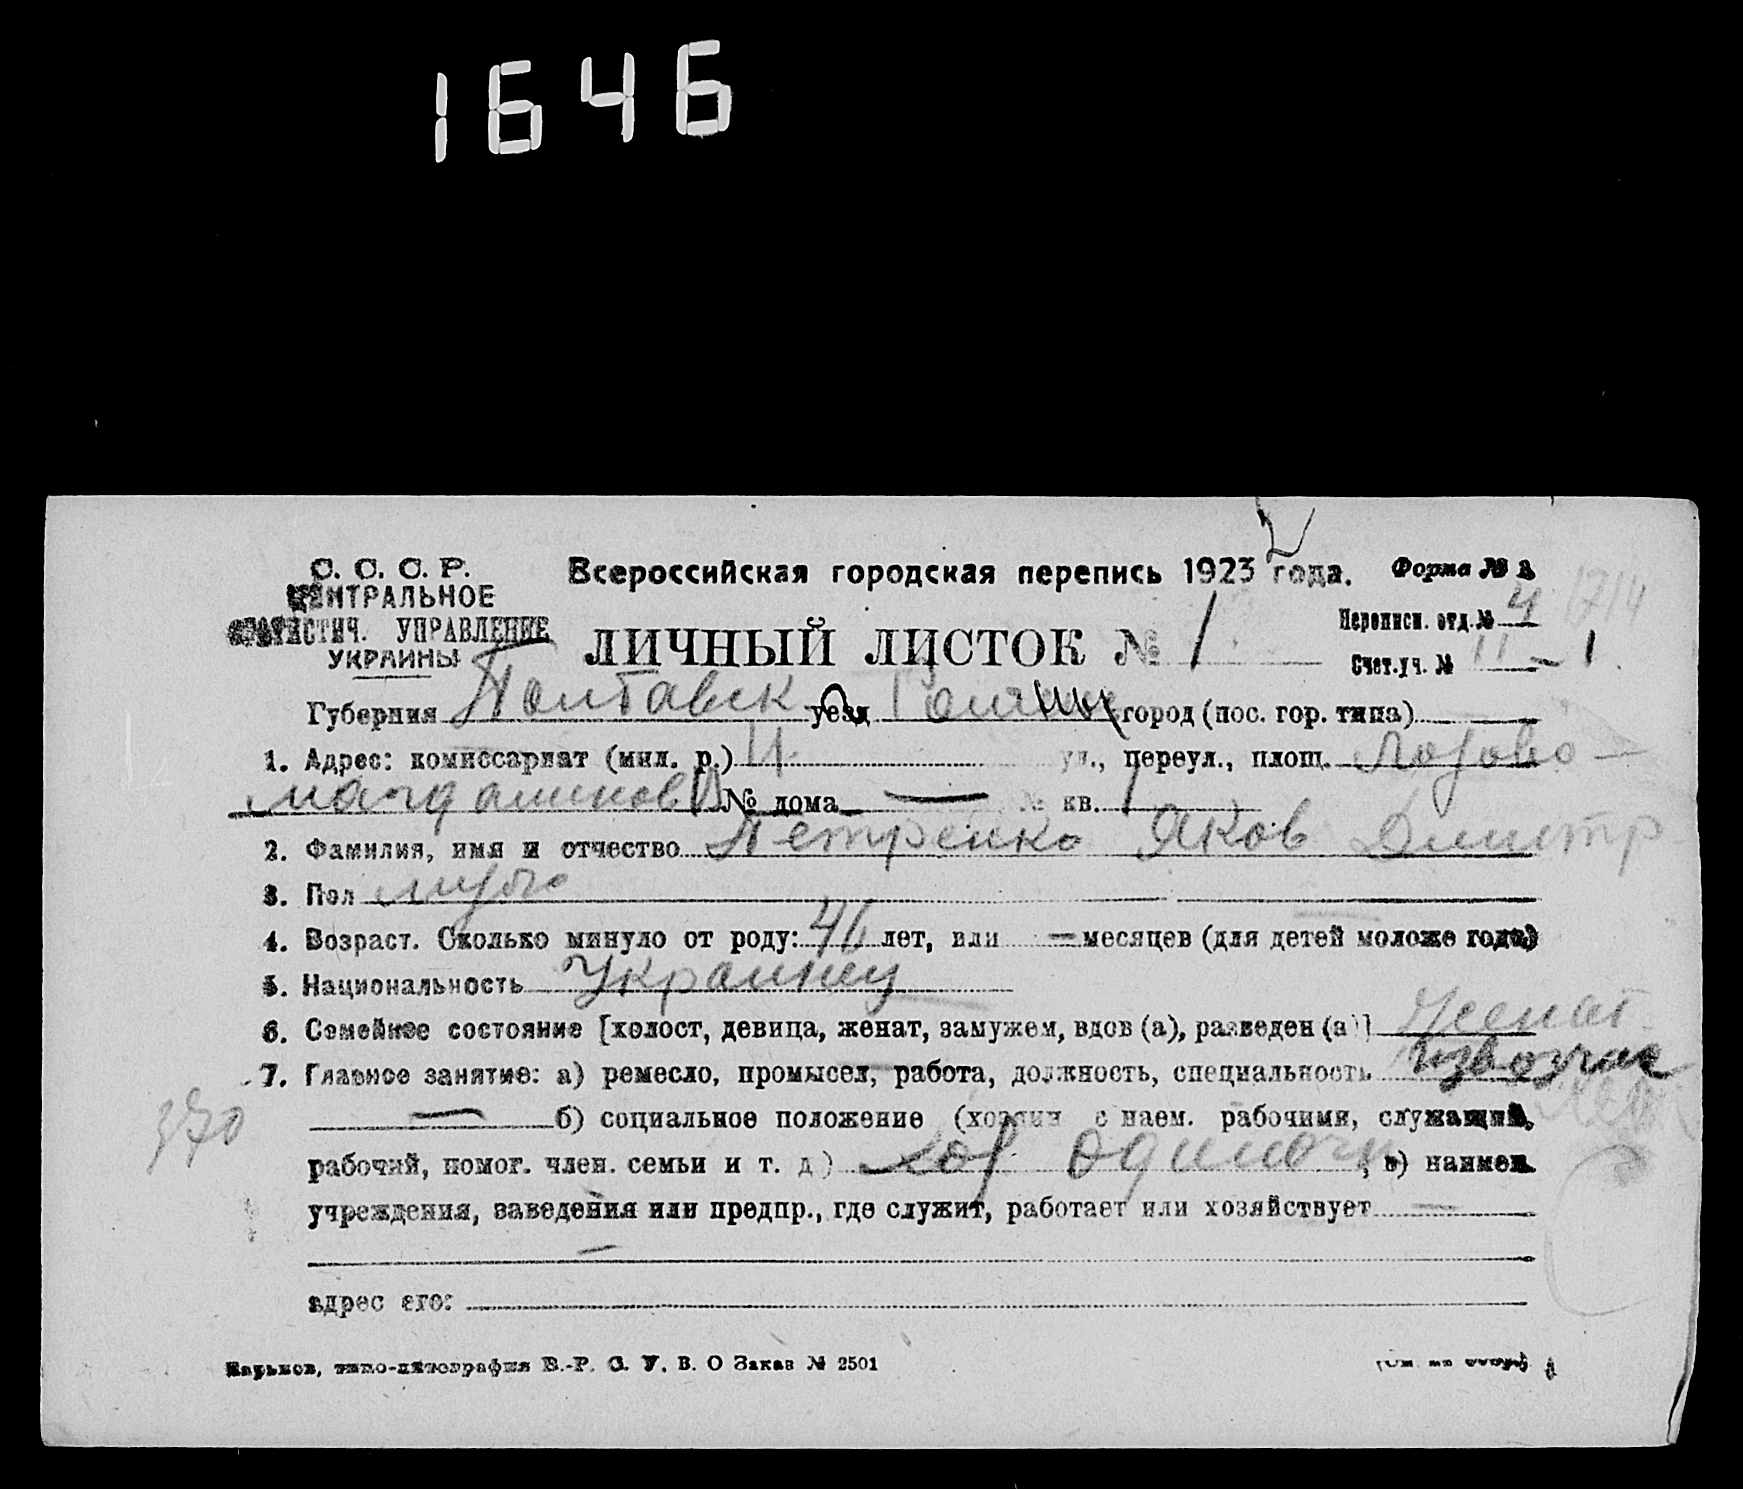 1646
С. С. С. Р.
ЦЕНТРАЛЬНОЕ
СТАТИСТИЧ. УПРАВЛЕНИЕ
УКРАИНЫ
Всероссийская городская перепись 1923 года. Форма № 2
ЛИЧНЫЙ ЛИСТОК № 1
Переписн. отд. № 4 1714
Счет. уч. № 11 – 1
Губерния Полтавск уезд город (пос. гор. типа)
1. Адрес: комиссариат (мил. р.) 4 ул., переул., площ. Лозово-
№ дома — № кв. 1
2. Фамилия, имя и отчество Петренко Яков Дмитр
3. Пол муж
4. Возраст. Сколько минуло от роду: 46 лет, или — месяцев (для детей моложе года)
5. Национальность Украинец
6. Семейное состояние [холост, девица, женат, замужем, вдов (а), разведен (а)] Женат
7. Главное занятие: а) ремесло, промысел, работа, должность, специальность извозчик
370
— б) социальное положение (хозяин с наем. рабочими, служащий,
рабочий, помог. член. семьи и т. д) хоз. одиноч, в) наимен.
учреждения, заведения или предпр., где служит, работает или хозяйствует —
—
адрес его:
Харьков, типо-литография В.-Р. С. У. В. О Заказ № 2501
(См. на обор.)